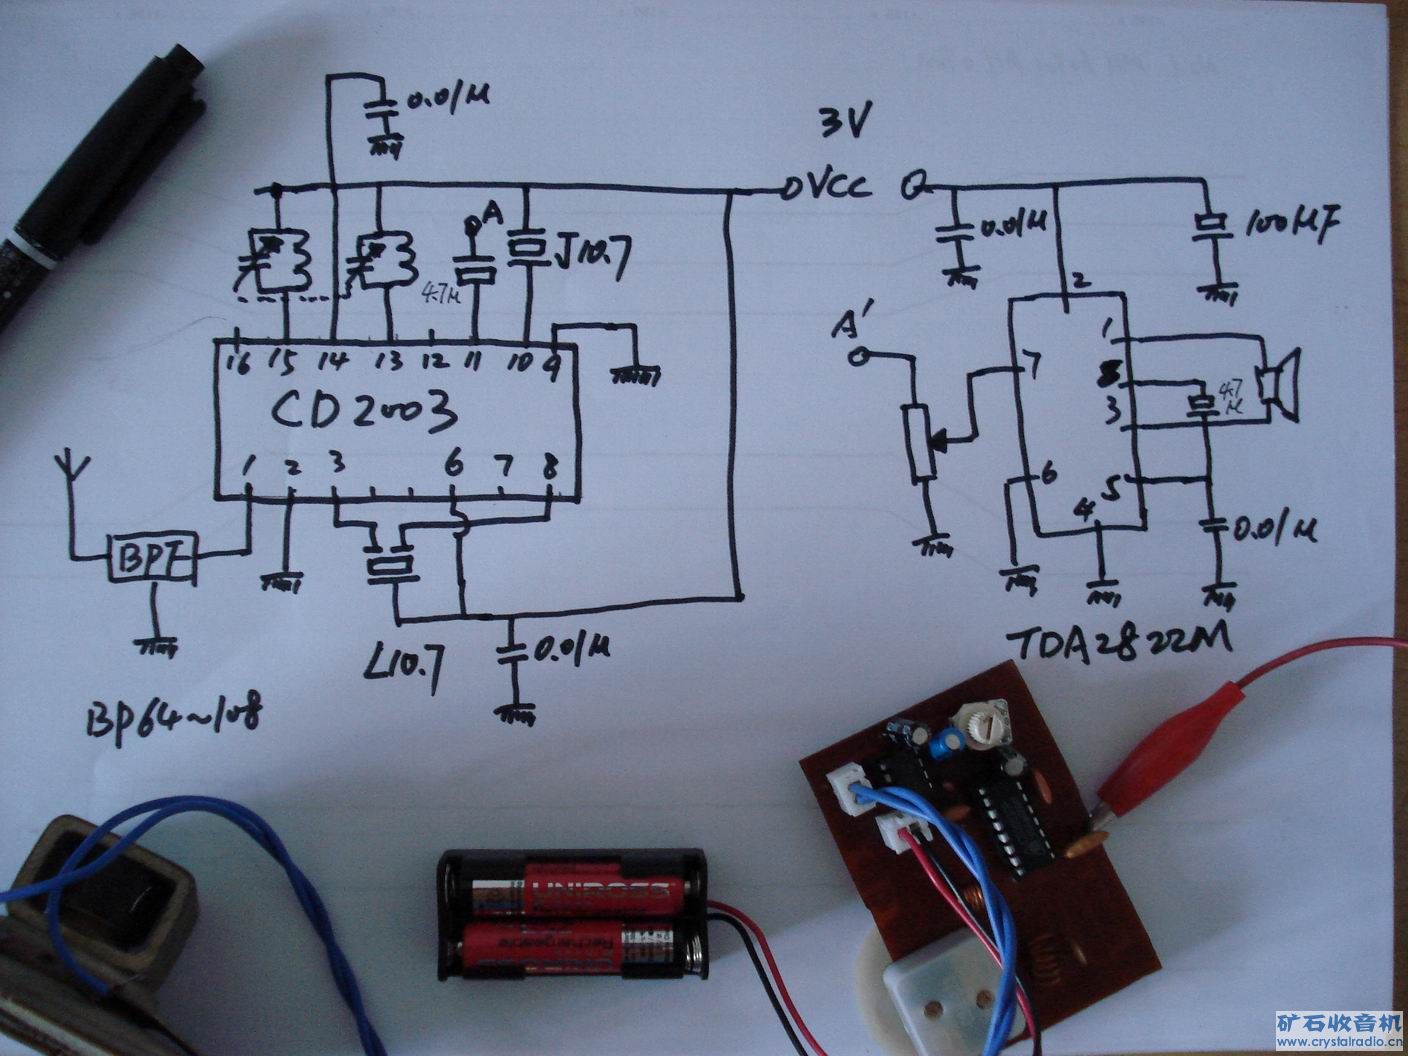 0.01μ
3V
VCC
0.01μ
100μF
A
J10.7
4.7μ
A'
16 15 14 13 12 11 10 9
CD2003
1 2 3 6 7 8
2
1
7
8
4.7
μ
3
6
5
4
0.01μ
BPF
TDA2822M
L10.7
0.01μ
BP64~108
UNIROSS
Rechargeable
矿石收音机
www.crystalradio.cn